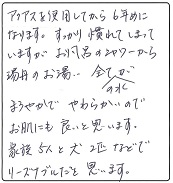 アクアスを使用してから6年めに
なります。すっかり慣れてしまって
いますがお風呂のシャワーから
湯舟のお湯‥全てが
のお水
まろやかで やわらかいので
お肌にも良いと思います。
家族5人と犬2匹などで
リーズナブルだと思います。